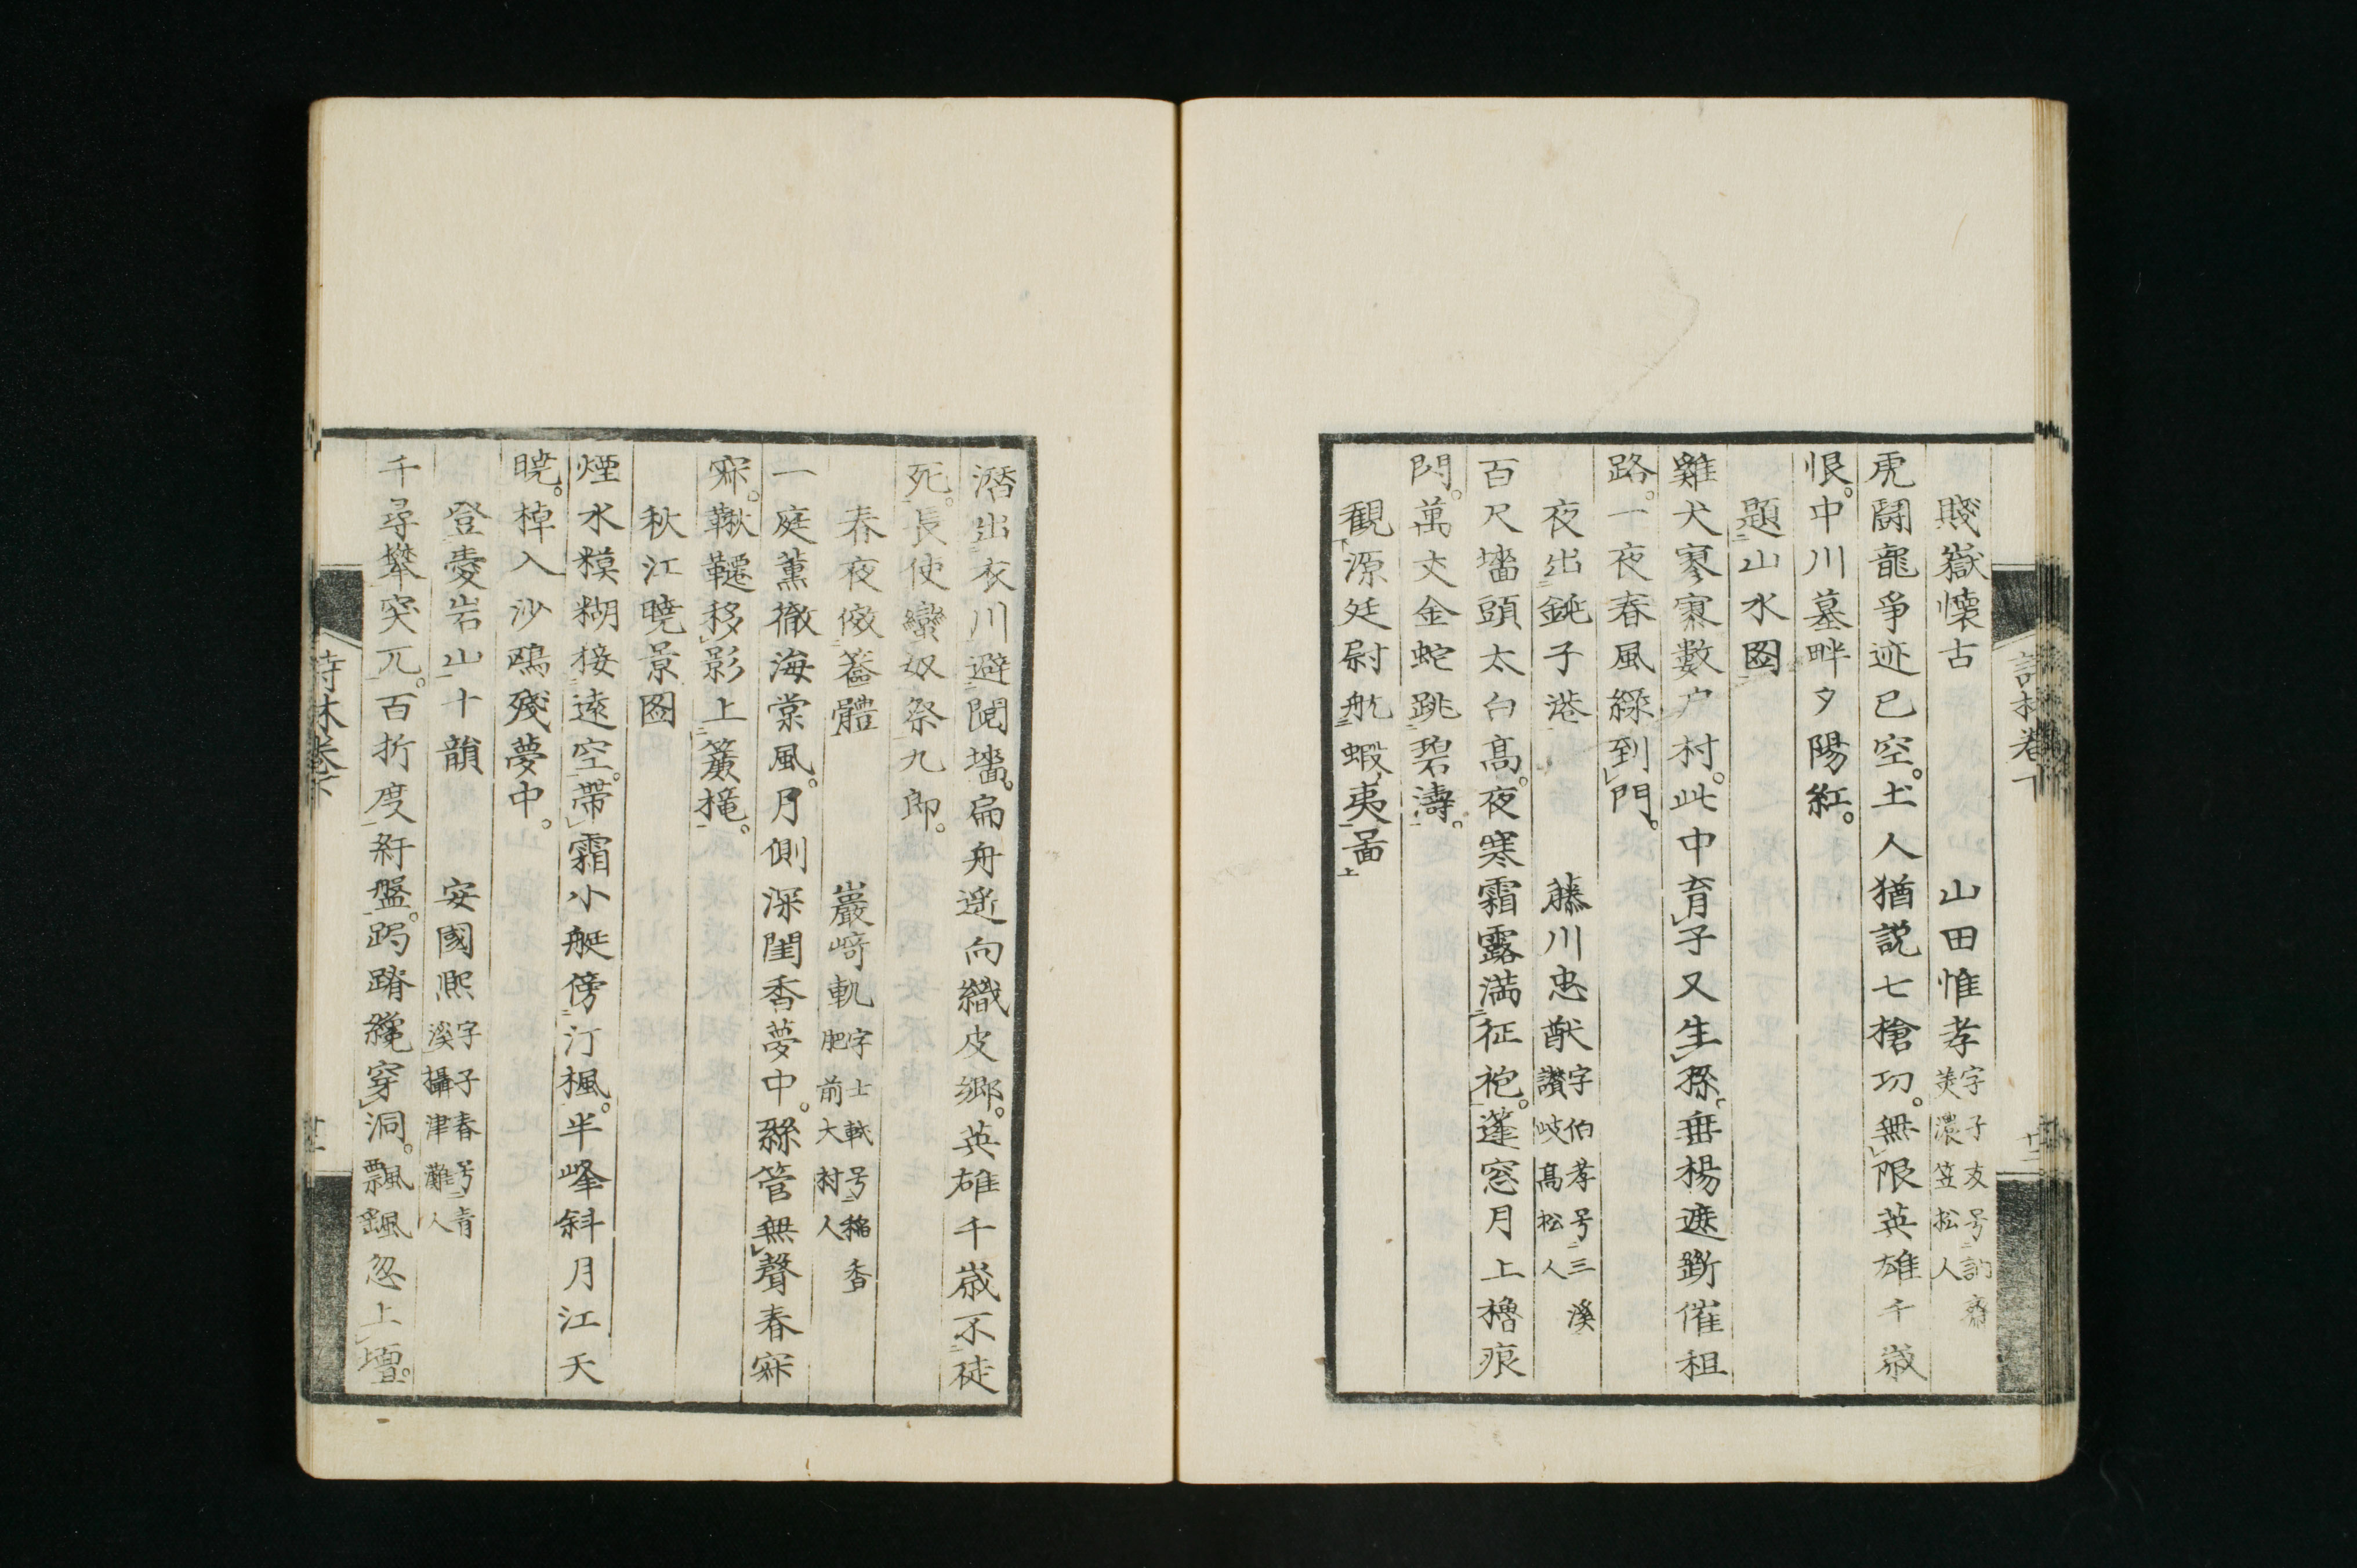 賤嶽懷古 山田惟孝 字子友号訥齋美濃笠松人
虎鬪龍爭迹已空。土人猶説七槍功。無限英雄千歳
恨。中川墓畔夕陽紅。
題山水圖
雞犬寥寥數户村。此中育子又生孫。垂楊遮斷催租
路。一夜春風綠到門。
夜出銚子港 藤川忠猷 字伯孝号三溪讃岐髙松人
百尺墻頭太白髙。夜寒霜露滿征袍。蓬窓月上櫓痕
閃。萬丈金蛇跳碧濤。
観源廷尉航蝦夷啚
潛出衣川避鬩墻。扁舟遥向織皮郷。英雄千歳不徒
死。長使蠻奴祭九郎。
春夜傚 體 巖﨑軌 字士軏号稲香肥前大村人
一庭薫徹海棠風。月側深閨香夢中。絲管無聲春寂
寂。鞦韆移影上簾櫳。
秋江曉景圖
煙水糢糊接遠空。帶霜小艇傍汀楓。半峰斜月江天
曉。棹入沙鷗殘夢中。
登愛岩山十韻 安國熙 字子春号青溪攝津灘人
千尋攀突兀。百折度紆盤。跼蹐纔穿洞。飄飄忽上壇。
詩材卷下
詩材卷下